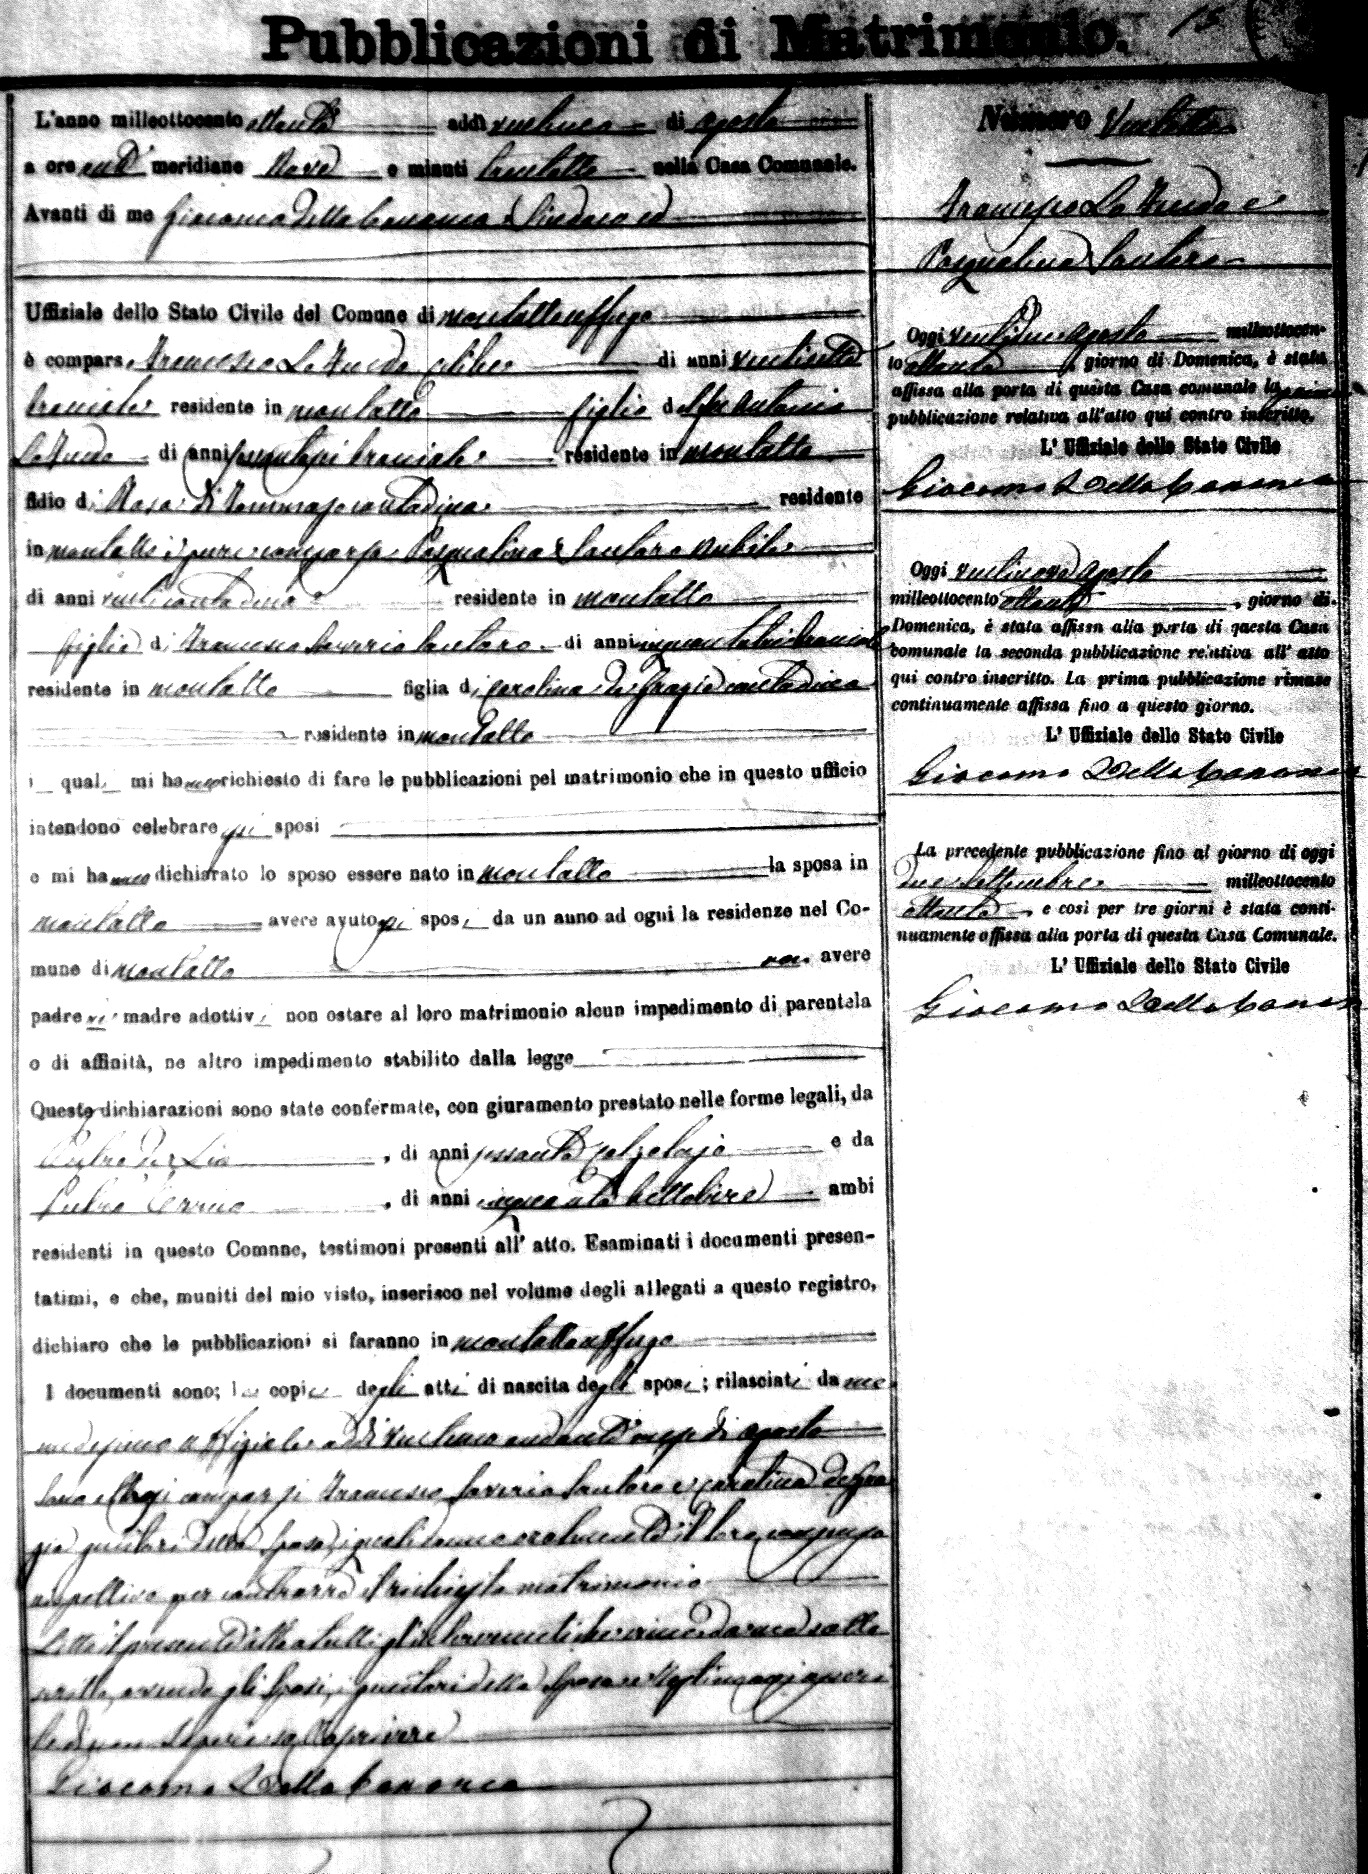 Pubblicazioni di Matrimonio.
15
L'anno milleottocento ottanta addì ventuno di agosto
a ore anti meridiane Nove e minuti trentotto nella Casa Comunale.
Avanti di me Giacomo Della Cananea Sindaco ed
Uffiziale dello Stato Civile del Comune di Montaltouffugo
è compars Francesco Lo celibe di anni ventisette
braciale residente in Montalto figlio di Antonio
di anni braciale residente in Montalto
figlio di Rosa Di Tommaso contadina residente
in Montalto è pure comparsa Pasqualina Santoro nubile
di anni venti contadina residente in Montalto
figlia di Francesco Saverio Santoro di anni braciale
residente in Montalto figlia di Carolina De Grazia contadina
residente in Montalto
i quali mi hanno richiesto di fare le pubblicazioni pel matrimonio che in questo ufficio
intendono celebrare gli sposi
e mi hanno dichiarato lo sposo essere nato in Montalto la sposa in
Montalto avere avuto gli sposi da un anno ad ogui la residenze nel Co-
mune di Montalto non avere
padre nè madre adottivi non ostare al loro matrimonio alcun impedimento di parentela
o di affinità, ne altro impedimento stabilito dalla legge
Queste dichiarazioni sono state confermate, con giuramento prestato nelle forme legali, da
Pietro De Lio, di anni sessanta calzolajo e da
Pietro, di anni cinquanta bettoliere ambi
residenti in questo Comnne, testimoni presenti all' atto. Esaminati i documenti presen-
tatimi, e che, muniti del mio visto, inserisco nel volume degli allegati a questo registro,
dichiaro che le pubblicazioni si faranno in Montaltouffugo
I documenti sono; le copie degli atti di nascita degli sposi; rilasciati da me
medesimo uffiziale addì ventuno andante mese di agosto
Sono altresì comparsi Francesco Saverio Santoro e Carolina De Gra
zia genitori della sposa, i quali danno oralmente il loro consenso
rispettivo per contrarre il richiesto matrimonio
Letto il presente atto a tutti gl'intervenuti che viene da me sotto
scritto, avendo gli sposi, i genitori della sposa e testimoni asseri
to di non sapere sottoscrivere
Giacomo Della Cananea
Numero Ventotto
Francesco Lo e
Pasqualina Santoro
Oggi ventidue agosto milleottocen-
to ottanta, giorno di Domenica, è stata
affissa alla porta di questa Casa comunale la prima
pubblicazione relativa all'atto qui contro inscritto.
L' Uffiziale dello Stato Civile
Giacomo Della Cananea
Oggi ventinove agosto
milleottocento ottanta, giorno di
Domenica, è stata affissa alla porta di questa Casa
comunale la seconda pubblicazione relativa all' atto
qui contro inscritto. La prima pubblicazione rimase
continuamente affissa fino a questo giorno.
L' Uffiziale dello Stato Civile
Giacomo Della Cananea
La precedente pubblicazione fino al giorno di oggi
due Settembre milleottocento
ottanta, e così per tre giorni è stata conti-
nuamente affissa alla porta di questa Casa Comunale.
L' Uffiziale dello Stato Civile
Giacomo Della Cananea